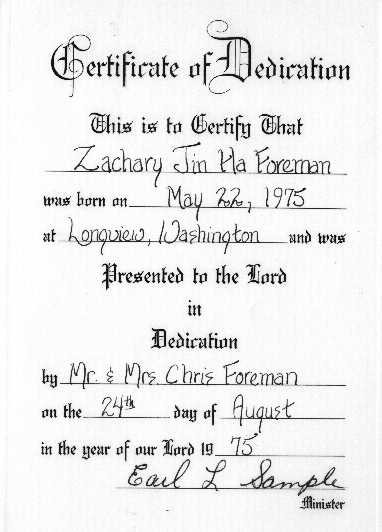 Certificate of Dedication
This is to Certify That
Zachary Jin Ha Foreman
was born on May 22, 1975
at Longview, Washington and was
Presented to the Lord
in
Dedication
by Mr. & Mrs. Chris Foreman
on the 24th day of August
in the year of our Lord 19 75
Earl L Sample
Minister